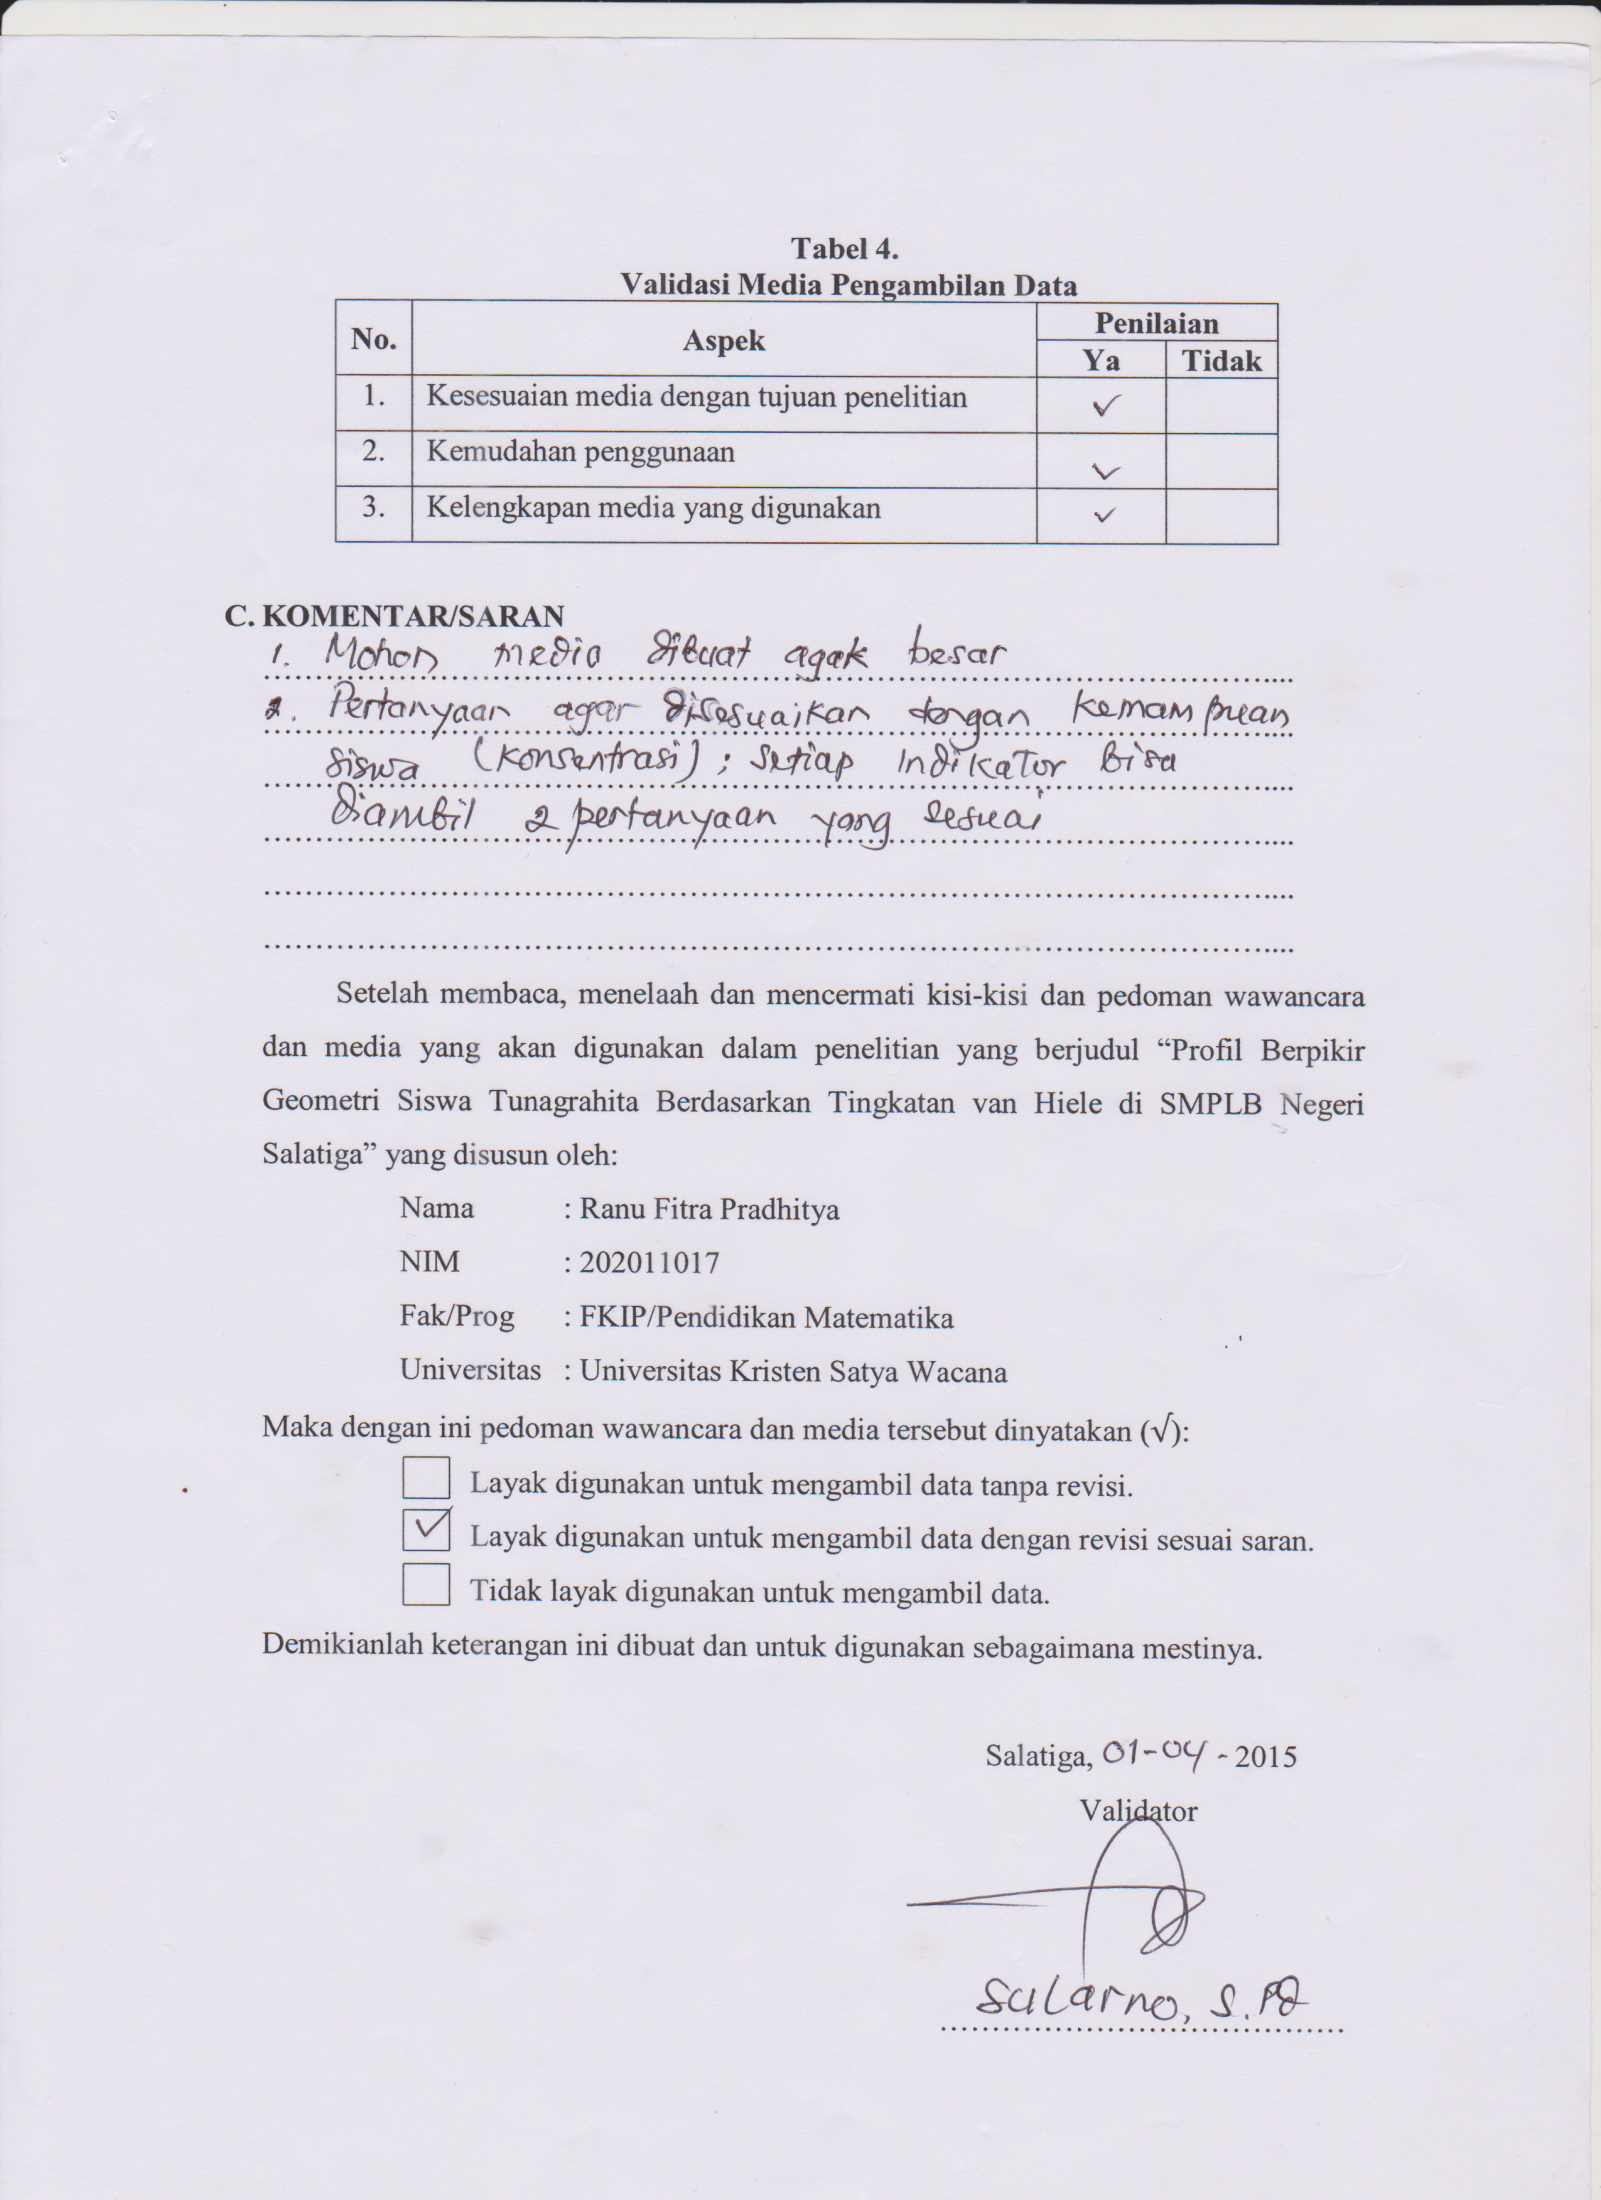 Tabel 4.
Validasi Media Pengambilan Data
No. Aspek Penilaian
Ya Tidak
1. Kesesuaian media dengan tujuan penelitian ✓
2. Kemudahan penggunaan ✓
3. Kelengkapan media yang digunakan ✓
C. KOMENTAR/SARAN
1. Mohon media dibuat agak besar
2. Pertanyaan agar disesuaikan dengan kemampuan
siswa (konsentrasi); setiap indikator bisa
diambil 2 pertanyaan yang sesuai
Setelah membaca, menelaah dan mencermati kisi-kisi dan pedoman wawancara
dan media yang akan digunakan dalam penelitian yang berjudul “Profil Berpikir
Geometri Siswa Tunagrahita Berdasarkan Tingkatan van Hiele di SMPLB Negeri
Salatiga” yang disusun oleh:
Nama : Ranu Fitra Pradhitya
NIM : 202011017
Fak/Prog : FKIP/Pendidikan Matematika
Universitas : Universitas Kristen Satya Wacana
Maka dengan ini pedoman wawancara dan media tersebut dinyatakan (√):
Layak digunakan untuk mengambil data tanpa revisi.
✓ Layak digunakan untuk mengambil data dengan revisi sesuai saran.
Tidak layak digunakan untuk mengambil data.
Demikianlah keterangan ini dibuat dan untuk digunakan sebagaimana mestinya.
Salatiga, 01-04 - 2015
Validator
Sularno, S.Pd